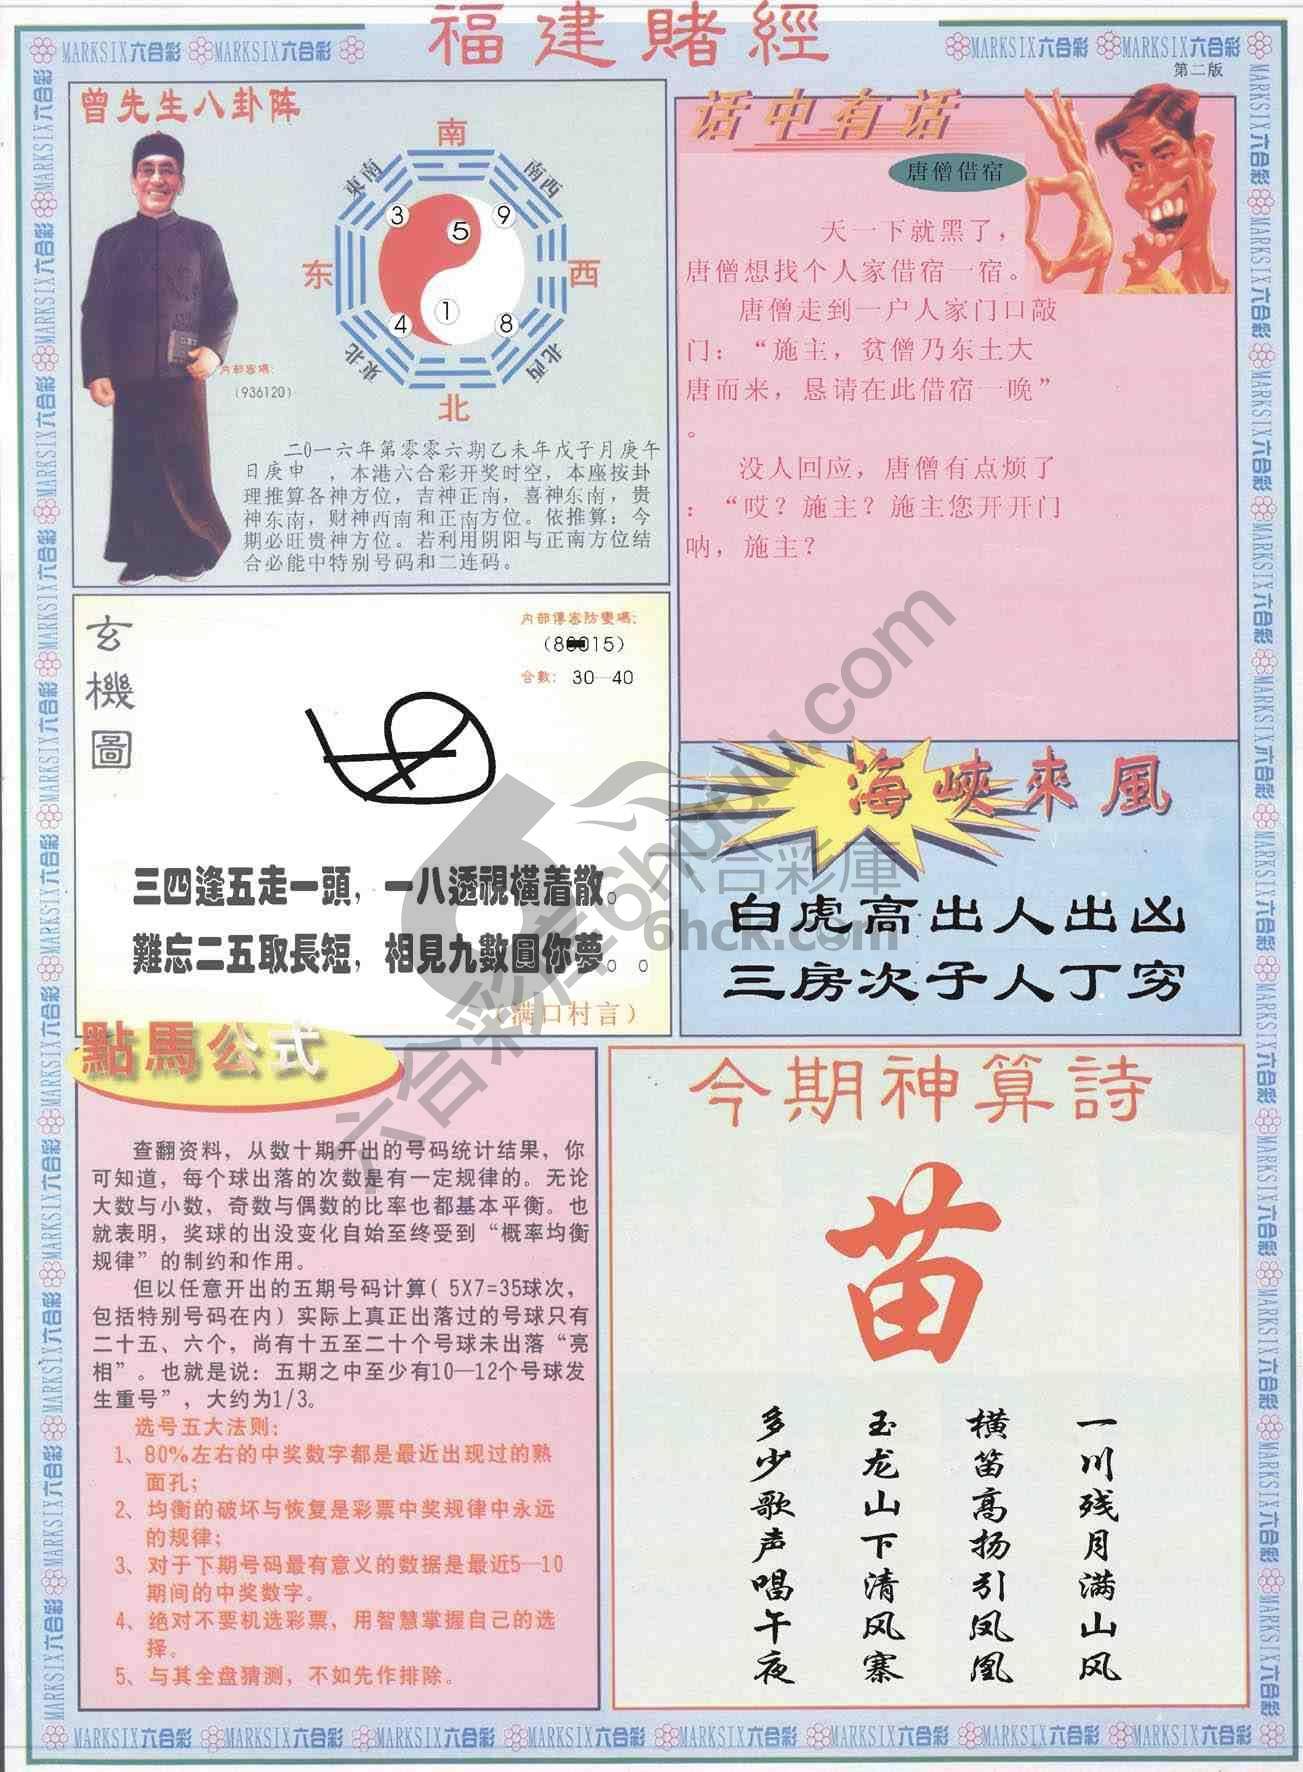 福建賭經
MARKSIX六合彩 MARKSIX六合彩
MARKSIX六合彩 MARKSIX六合彩
第二版
曾先生八卦阵
南
東南
南西
3
5
9
东
西
4
1
8
東北
北西
北
内部密碼:
(936120)
二0一六年第零零六期乙未年戊子月庚午
日庚申，本港六合彩开奖时空，本座按卦
理推算各神方位，吉神正南，喜神东南，贵
神东南，财神西南和正南方位。依推算：今
期必旺贵神方位。若利用阴阳与正南方位结
合必能中特别号码和二连码。
话中有话
唐僧借宿
天一下就黑了，
唐僧想找个人家借宿一宿。
唐僧走到一户人家门口敲
门：“施主，贫僧乃东土大
唐而来，恳请在此借宿一晚”
。
没人回应，唐僧有点烦了
：“哎？施主？施主您开开门
呐，施主？
玄機圖
内部傳密防變碼:
合數: 30—40
三四逢五走一頭，一八透視橫着散。
難忘二五取長短，相見九數圓你夢。。
（满口村言）
海峽來風
白虎高出人出凶
三房次子人丁穷
點馬公式
查翻资料，从数十期开出的号码统计结果，你
可知道，每个球出落的次数是有一定规律的。无论
大数与小数，奇数与偶数的比率也都基本平衡。也
就表明，奖球的出没变化自始至终受到“概率均衡
规律”的制约和作用。
但以任意开出的五期号码计算( 5X7=35球次，
包括特别号码在内）实际上真正出落过的号球只有
二十五、六个，尚有十五至二十个号球未出落“亮
相”。也就是说：五期之中至少有10—12个号球发
生重号”，大约为1/3。
选号五大法则：
1、80%左右的中奖数字都是最近出现过的熟
面孔；
2、均衡的破坏与恢复是彩票中奖规律中永远
的规律；
3、对于下期号码最有意义的数据是最近5—10
期间的中奖数字。
4、绝对不要机选彩票，用智慧掌握自己的选
择。
5、与其全盘猜测，不如先作排除。
今期神算詩
苗
一川残月满山风
横笛高扬引凤凰
玉龙山下清风寨
多少歌声唱午夜
六合彩库6hduqu.com
六合彩庫
6hck.com
MARKSIX六合彩 MARKSIX六合彩 MARKSIX六合彩 MARKSIX六合彩 MARKSIX六合彩 MARKSIX六合彩 MARKSIX六合彩 MARKSIX六合彩